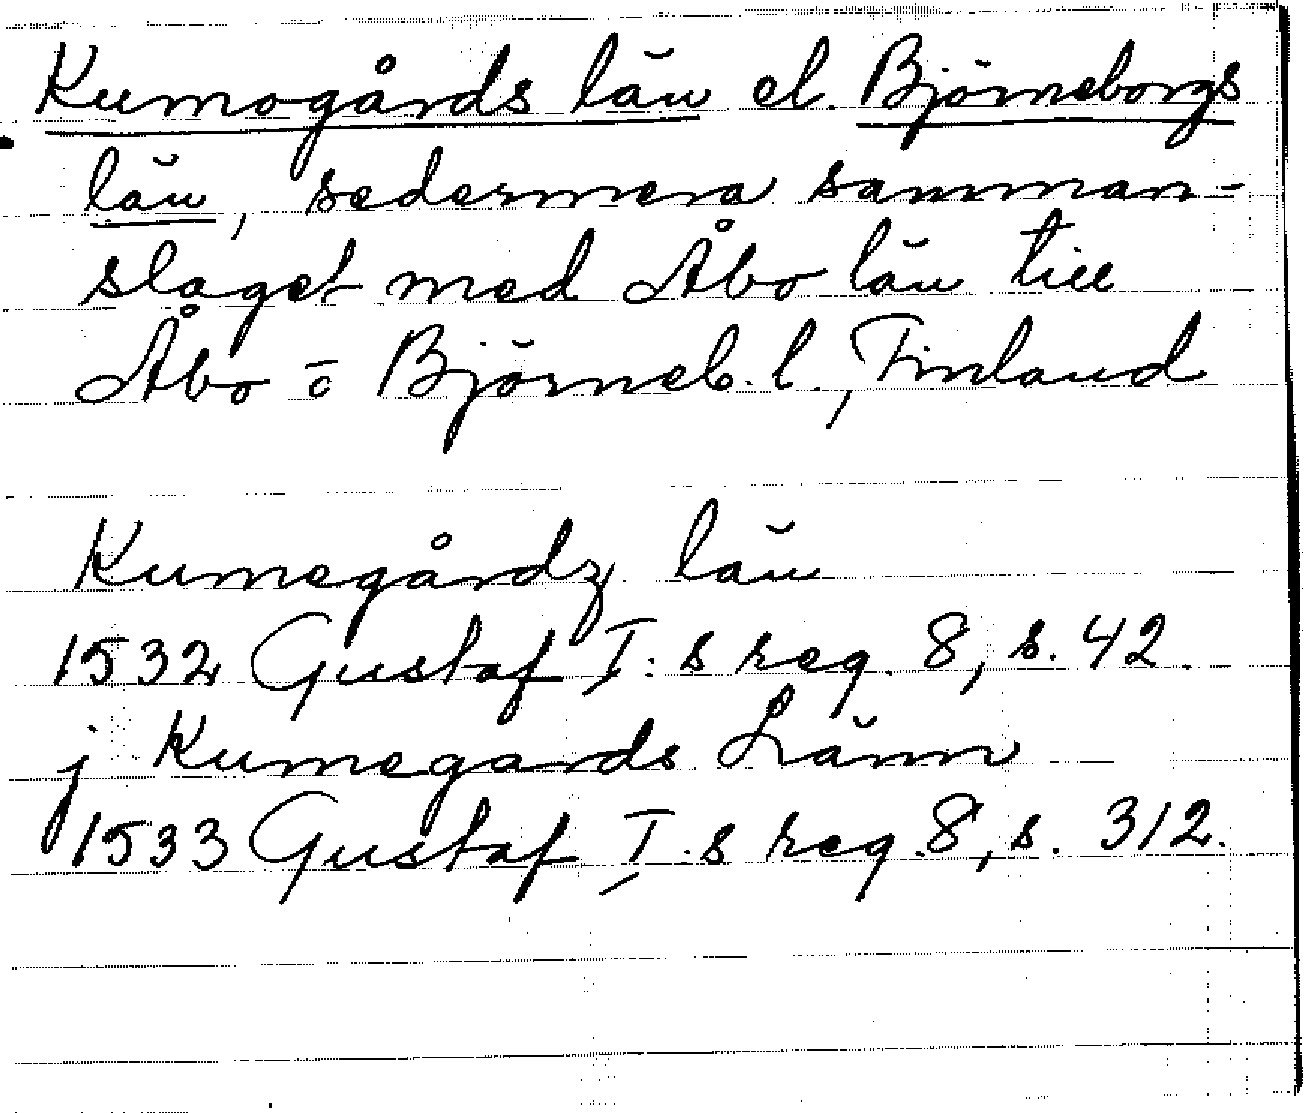 Kumogårds län el. Björneborgs
län, sedermera samman-
slaget med Åbo län till
Åbo o Björneb. l., Finland
Kumegårdz län
1532 Gustaf I:s reg. 8, s. 42.
j Kumegards Länn
1533 Gustaf I.s reg. 8, s. 312.